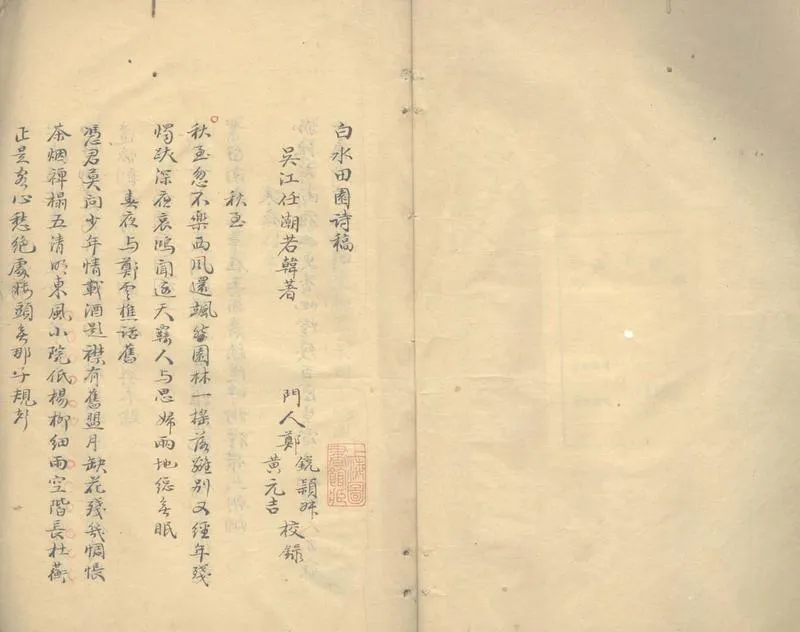 白水田園詩稿
吳江任湖若韓著 門人鄭鏡穎 黃元吉 校錄
秋至
秋至忽不樂西風還颯然園林一搖落離別又經年殘
燭跋深夜哀鴻聞遠天羇人与思婦兩地總無眠
春夜与鄭雲樵話舊
憑君莫問少年情載酒題襟有舊盟月缺花殘幾惆悵
茶烟禪榻五清明東風小院低楊柳細雨空階長杜蘅
正是客心愁絕處枝頭無那子規聲
上海圖書館藏